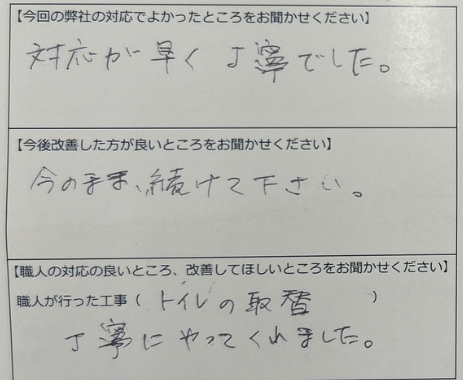 【今回の弊社の対応でよかったところをお聞かせください】
対応が早く丁寧でした。
【今後改善した方が良いところをお聞かせください】
今のまま、続けて下さい。
【職人の対応の良いところ、改善してほしいところをお聞かせください】
職人が行った工事（ トイレの取替 ）
丁寧にやってくれました。